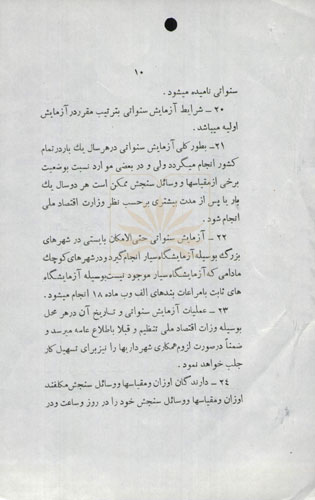 ۱۰
سنواتی نامیده میشود .
۲۰ ـ شرایط آزمایش سنواتی بترتیب مقرر در آزمایش
اولیه میباشد .
۲۱ ـ بطور کلی آزمایش سنواتی در هر سال یك بار در تمام
کشور انجام میگردد ولی و در بعضی موارد نسبت بوضعیت
برخی از مقیاسها و وسائل سنجش ممکن است هر دو سال یك
بار یا پس از مدت بیشتری بر حسب نظر وزارت اقتصاد ملی
انجام شود .
۲۲ ـ آزمایش سنواتی حتی الامکان بایستی در شهر های
بزرگ بوسیله آزمایشگاه سیار انجام گیرد و در شهر های کوچك
مادامی که آزمایشگاه سیار موجود نیست بوسیله آزمایشگاه
های ثابت با مراعات بند های الف وب ماده ۱۸ انجام میشود .
۲۳ ـ عملیات آزمایش سنواتی و تاریخ آن در هر محل
بوسیله وزات اقتصاد ملی تنظیم و قبلا باطلاع عامه میرسد و
ضمناً در صورت لزوم همکاری شهرداریها را نیز برای تسهیل کار
جلب خواهد نمود .
۲۴ ـ دارندگان اوزان ومقیاسها ووسائل سنجش مکلفند
اوزان ومقیاسها ووسائل سنجش خود را در روز وساعت ودر